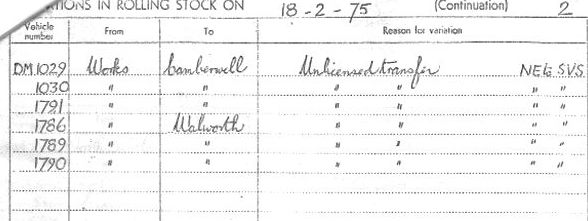 TIONS IN ROLLING STOCK ON 18-2-75 (Continuation) 2
Vehicle number From To Reason for variation
DM1029 Works Camberwell Unlicensed transfer NE to SVS
1030 " " " " " "
1791 " " " " " "
1786 " Walworth " " " "
1789 " " " " " "
1790 " " " " " "